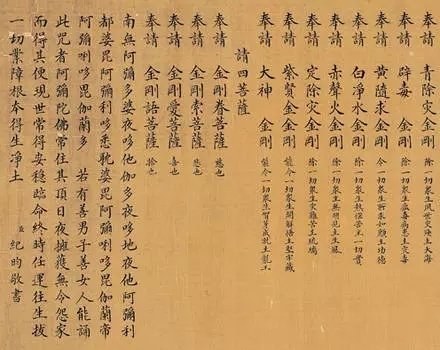 奉請 青除灾金剛 除一切衆生夙世灾殃主大海
奉請 辟毒金剛 除一切衆生瘟毒病患主灾毒
奉請 黄隨求金剛 令一切衆生所求如願主功德
奉請 白净水金剛 除一切衆生熱惱苦主一切寶
奉請 赤聲火金剛 除一切衆生無明見主生風
奉請 定除灾金剛 除一切衆生灾難苦主琉璃
奉請 紫賢金剛 能令一切衆生開解悟主堅牢藏
奉請 大神金剛 能令一切衆生智芽成就主龍王
請四菩薩
奉請 金剛眷菩薩 慈也
奉請 金剛索菩薩 悲也
奉請 金剛愛菩薩 喜也
奉請 金剛語菩薩 捨也
南無阿彌多婆夜哆他伽多夜哆地夜他阿彌利
都婆毘阿彌利哆悉躭婆毘阿彌利哆毘伽蘭帝
阿彌唎哆毘伽蘭多 若有善男子善女人能誦
此咒者阿彌陀佛常住其頂日夜擁護無令怨家
而得其便現世常得安穩臨命終時任運往生拔
一切業障根本得生净土
紀昀敬書